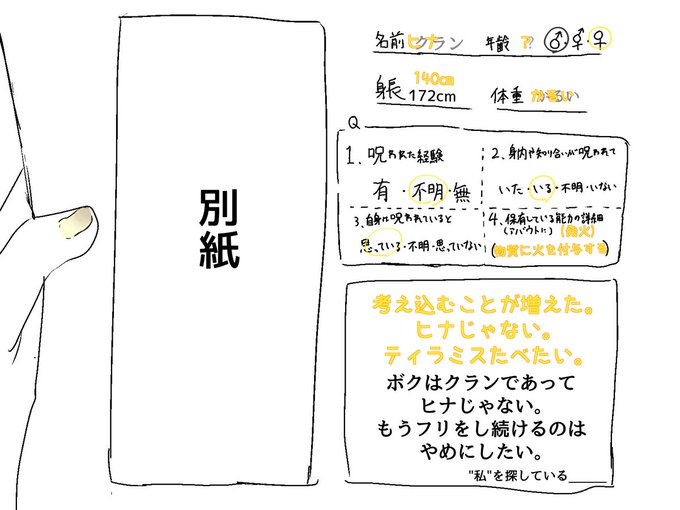 別紙
名前 ヒナ クラン 年齢 ?? ♂・⚥・♀
身長 140cm 172cm 体重 かるい
Q
1、呪われた経験
有・不明・無
2、身内や知り合いが呪われて
いた・いる・不明・いない
3、自身は呪われていると
思っている・不明・思っていない
4、保有している能力の詳細
(アバウトに) (発火)
(物質に火を付与する)
考え込むことが増えた。
ヒナじゃない。
ティラミスたべたい。
ボクはクランであって
ヒナじゃない。
もうフリをし続けるのは
やめにしたい。
"私"を探している